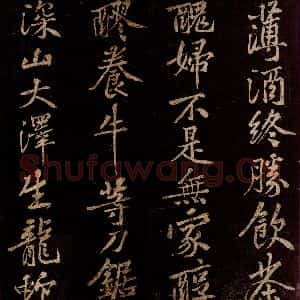 薄酒終勝飲茶
醜婦不是無家醇
醪養牛等刀鋸
深山大澤生龍蛇
Shufawang.Cn